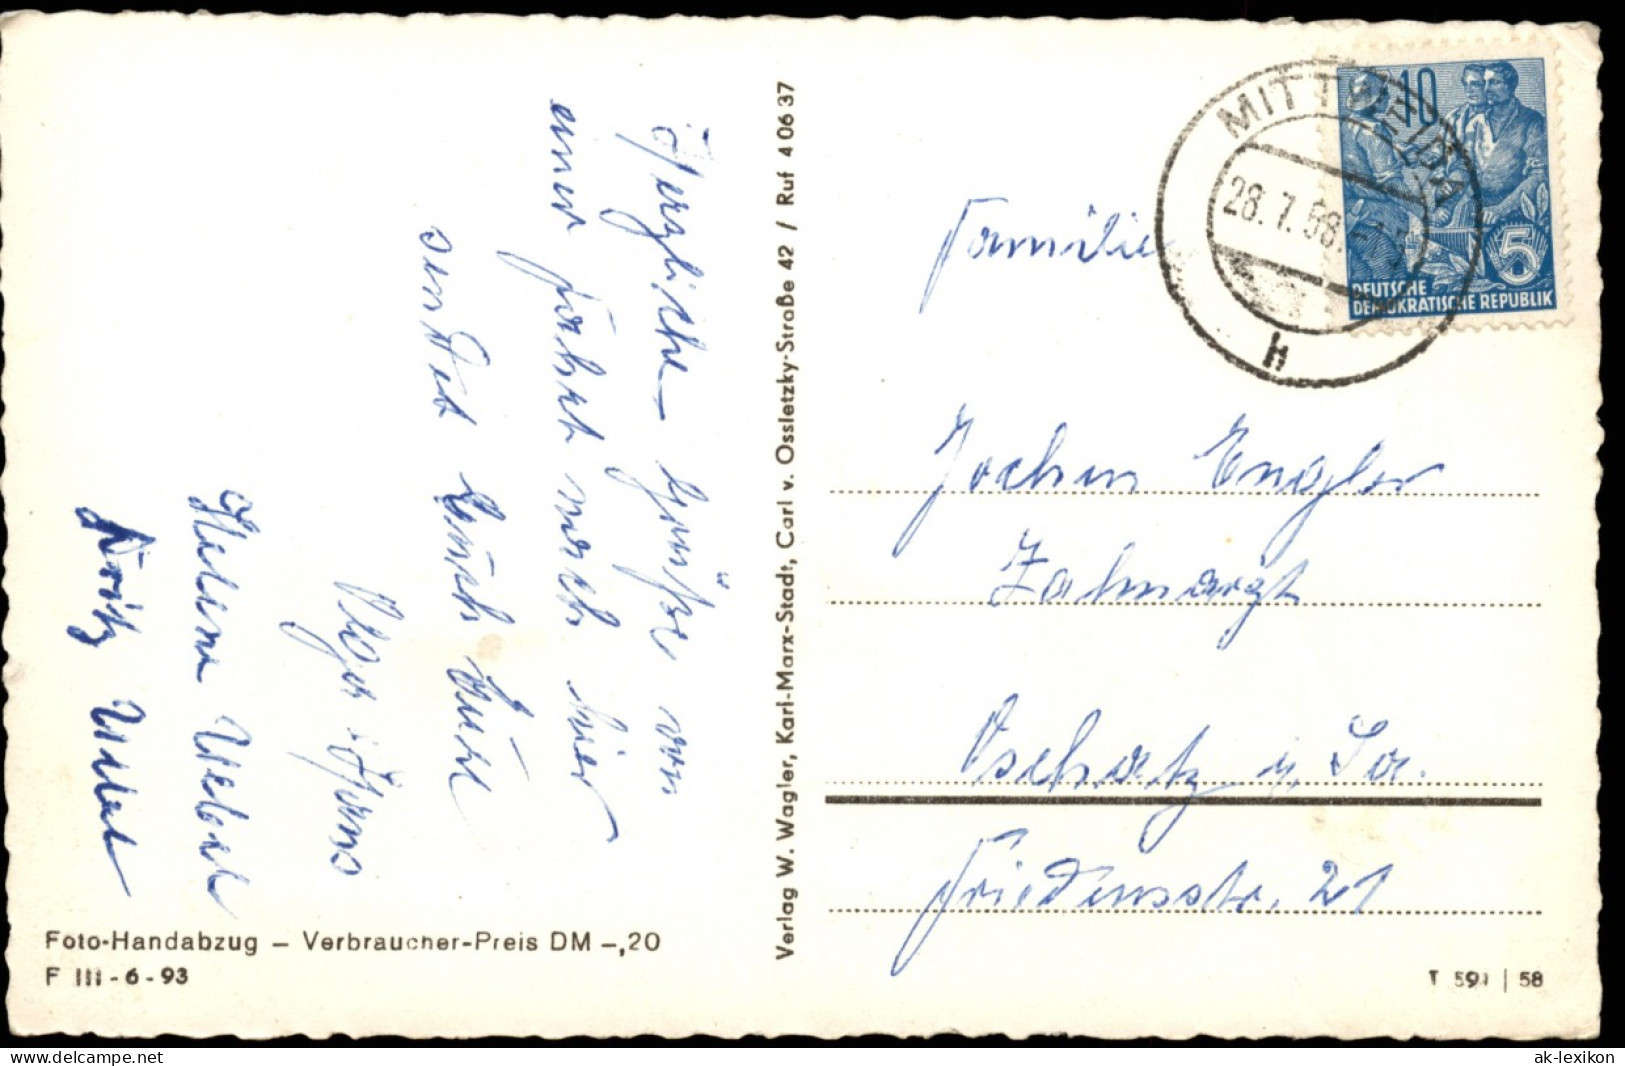 Herzliche Grüße von
einer Fahrt nach hier
sendet Euch Eure
Olga Hans
Helene
Fritz
Foto-Handabzug – Verbraucher-Preis DM –,20
F III - 6 - 93
Verlag W. Wagler, Karl-Marx-Stadt, Carl v. Ossietzky-Straße 42 / Ruf 4 06 37
MITTWEIDA
28.7.58
h
10
5
DEUTSCHE
DEMOKRATISCHE REPUBLIK
Familie
Jochen Engler
Zahnarzt
Oschatz i. Sa.
Friedensstr. 21
T 591 | 58
https://www.delcampe.net
ak-lexikon